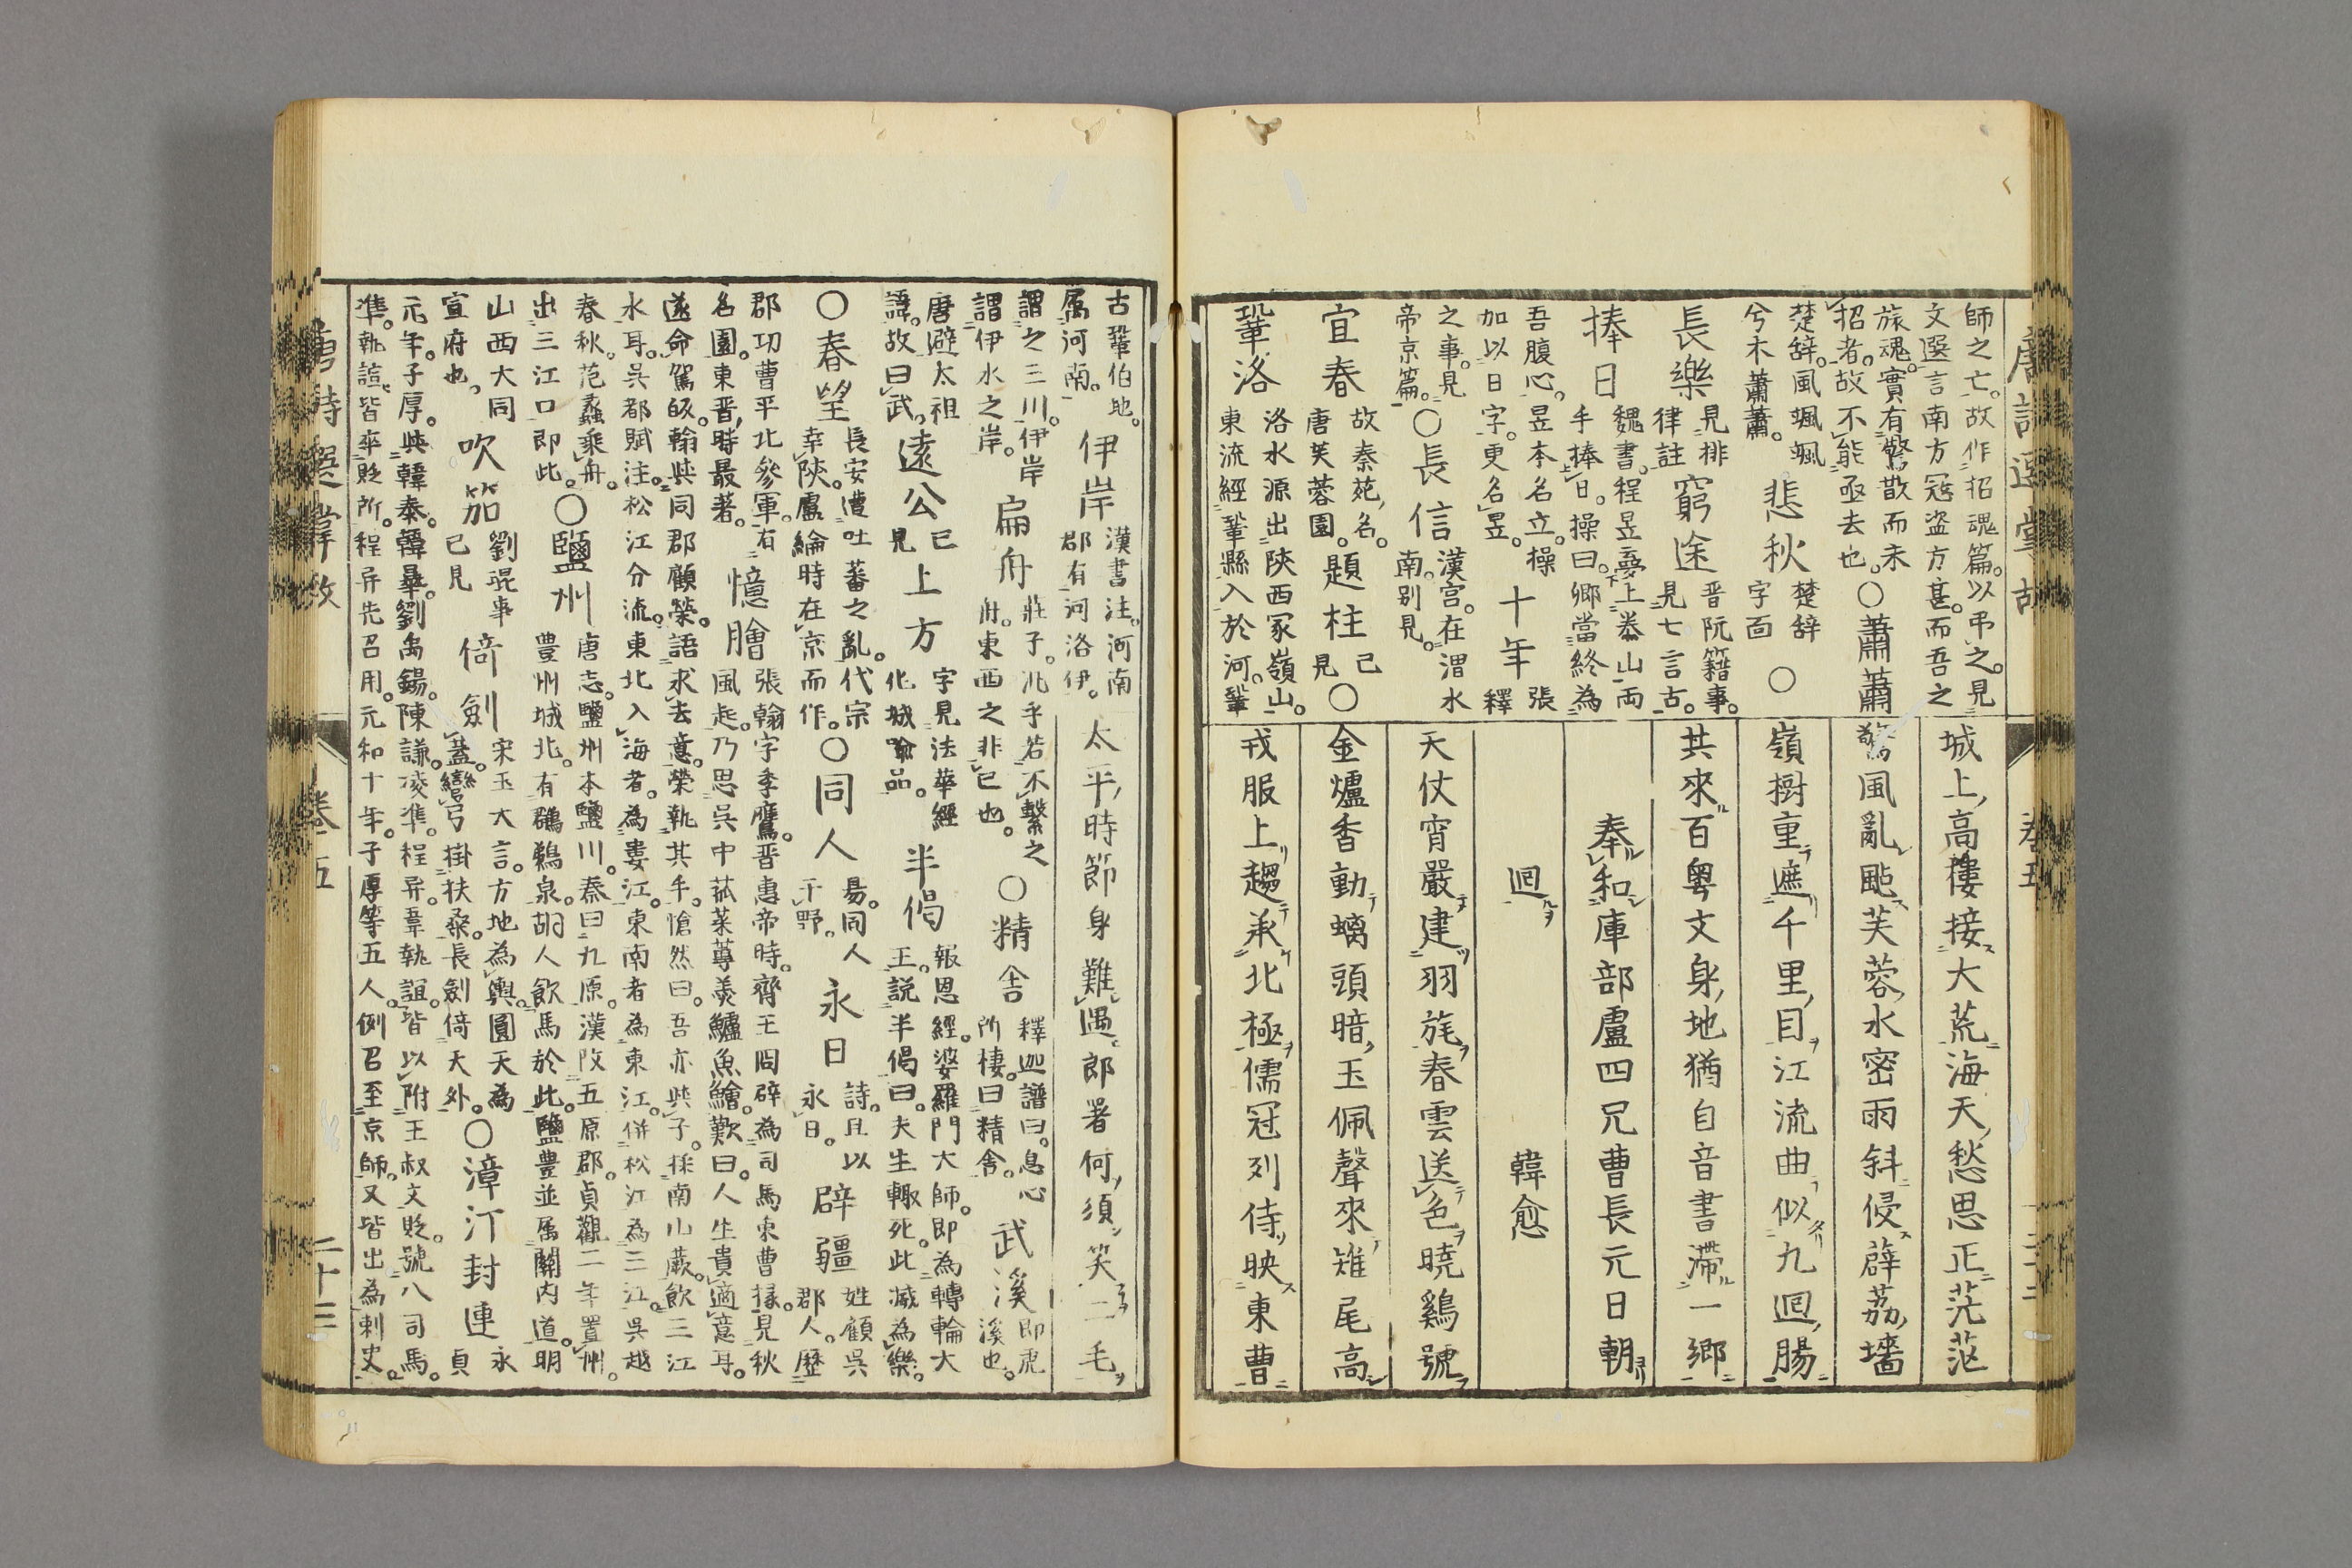 師之亡。故作招魂篇。以弔之。見
文選言南方冦盗方甚。而吾之
旅魂實有驚散而未
招者。故不能亟去也。
○蕭蕭
楚辞。風颯颯
兮木蕭蕭。
悲秋
楚辞
字面
○
長樂
見排
律註
窮途
晋阮籍事。
見七言古。
捧日
魏書。程昱夢上泰山両
手捧日。操曰。卿當終為
吾腹心。昱本名立。操
加以日字。更名昱。
十年
張
釋
之事。見
帝京篇。
○長信
漢宮。在渭水
南。別見。
宜春
故秦苑名。
唐芙蓉園。
題柱
已
見
○
鞏洛
洛水源出陝西冢嶺山。
東流經鞏縣入於河。鞏
城上高樓接大荒海天愁思正茫茫
驚風亂颭芙蓉水密雨斜侵薜荔墻
嶺樹重遮千里目江流曲似九迴膓
共來百粤文身地猶自音書滯一郷
奉和庫部盧四兄曹長元日朝
迴　韓愈
天仗宵嚴建羽旄春雲送色曉鷄號
金爐香動螭頭暗玉佩聲來雉尾高
戎服上趨承北極儒冠列侍映東曹
太平時節身難遇郎署何須笑二毛
古鞏伯地。
属河南。
伊岸
漢書注。河南
郡有河洛伊。
謂之三川。伊岸
謂伊水之岸。
扁舟
莊子。汎乎若不繫之
舟。東西之非已也。
○精舎
釋迦譜曰。息心
所棲。曰精舎。
武溪
即虎
溪也。
唐避太祖
諱。故曰武。
遠公
已
見
上方
字見法華經
化城喩品。
半偈
報恩經。婆羅門大師。即為轉輪大
王。説半偈曰。夫生輙死。此滅為樂。
○春望
長安遭吐蕃之亂。代宗
幸陝。盧綸時在京而作。
○同人
易。同人
于野。
永日
詩。且以
永日。
辟疆
姓顧呉
郡人。歴
郡功曹平北參軍。有
名園。東晋時最著。
憶膾
張翰字季鷹。晋惠帝時。齊王冏辟為司馬東曹掾。見秋
風起。乃思呉中菰菜蓴羮鱸魚鱠。歎曰。人生貴適意耳。
遂命駕皈。翰與同郡顧榮。語求去意。榮執其手。愴然曰。吾亦與子。採南山蕨。飲三江
水耳。呉郡賦注。松江分流。東北入海者。為婁江。東南者為東江。併松江為三江。呉越
春秋。范蠡乗舟。
出三江口即此。
○鹽州
唐志。鹽州本鹽川。秦曰九原。漢改五原郡。貞觀二年置州。
豊州城北。有鸊鵜泉。胡人飲馬於此。鹽豊並属關内道。明
山西大同
宣府也。
吹笳
劉琨事
已見
倚劍
宋玉大言。方地為輿。圓天為
蓋。彎弓掛扶桑。長劍倚天外。
○漳汀封連
永
貞
元年。子厚。與韓泰。韓曅。劉禹錫。陳謙。凌準。程异。韋執誼。皆以附王叔文貶。號八司馬。
準。執誼。皆卒貶所。程异先召用。元和十年。子厚等五人。例召至京師。又皆出為剌史。
卷五
二十三